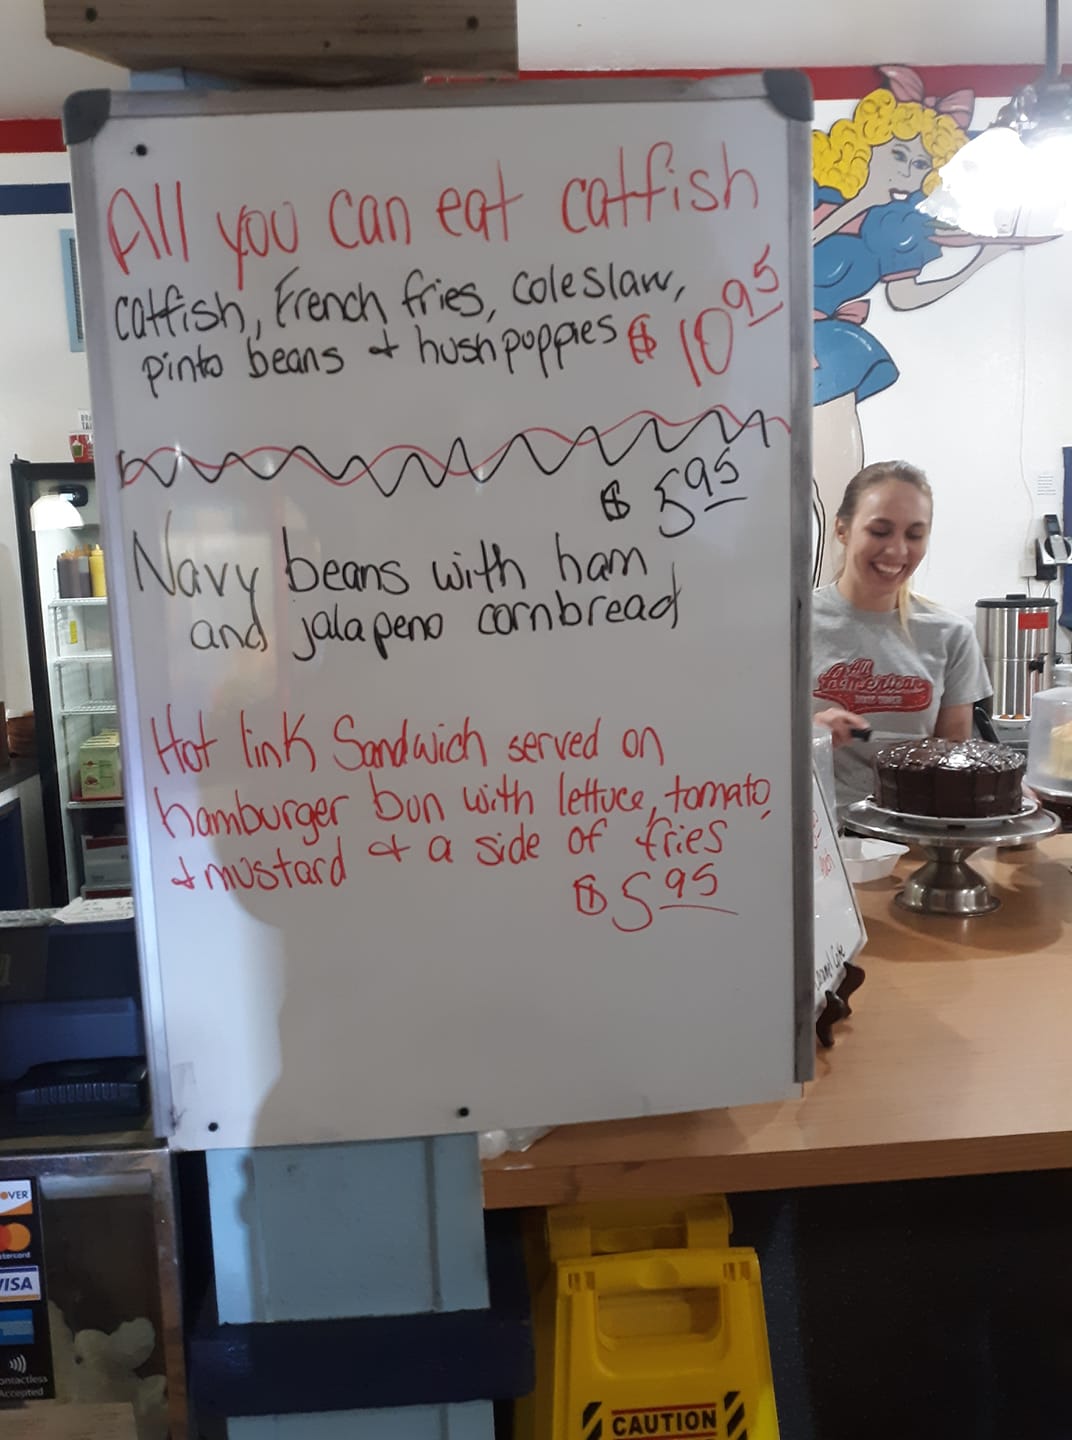 All you can eat catfish
catfish, French fries, coleslaw,
pinto beans + hushpuppies $10.95
$5.95
Navy beans with ham
and jalapeno cornbread
Hot link Sandwich served on
hamburger bun with lettuce, tomato,
+ mustard + a side of fries
$5.95
All
American
OVER
mastercard
VISA
Contactless
Accepted
CAUTION